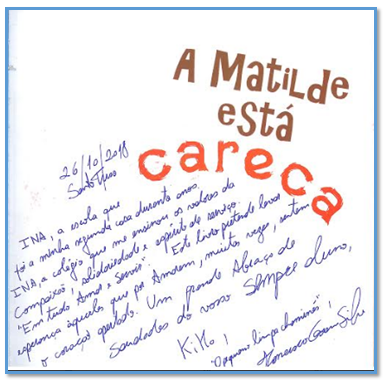 A Matilde
está
careca
26/10/2018
Santo Tirso
INA, a escola que
foi a minha segunda casa durante anos.
INA, o colégio que me ensinou os valores da
compaixão, solidariedade e espírito de serviço.
"Em tudo Amar e Servir". Este livro pretende levar
esperança àqueles que por Amarem, muitas vezes, sentem
o coração apertado. Um grande Abraço de
saudades do vosso sempre aluno,
Kiko,
"O pequeno limpa chaminés",
Francisco Silva